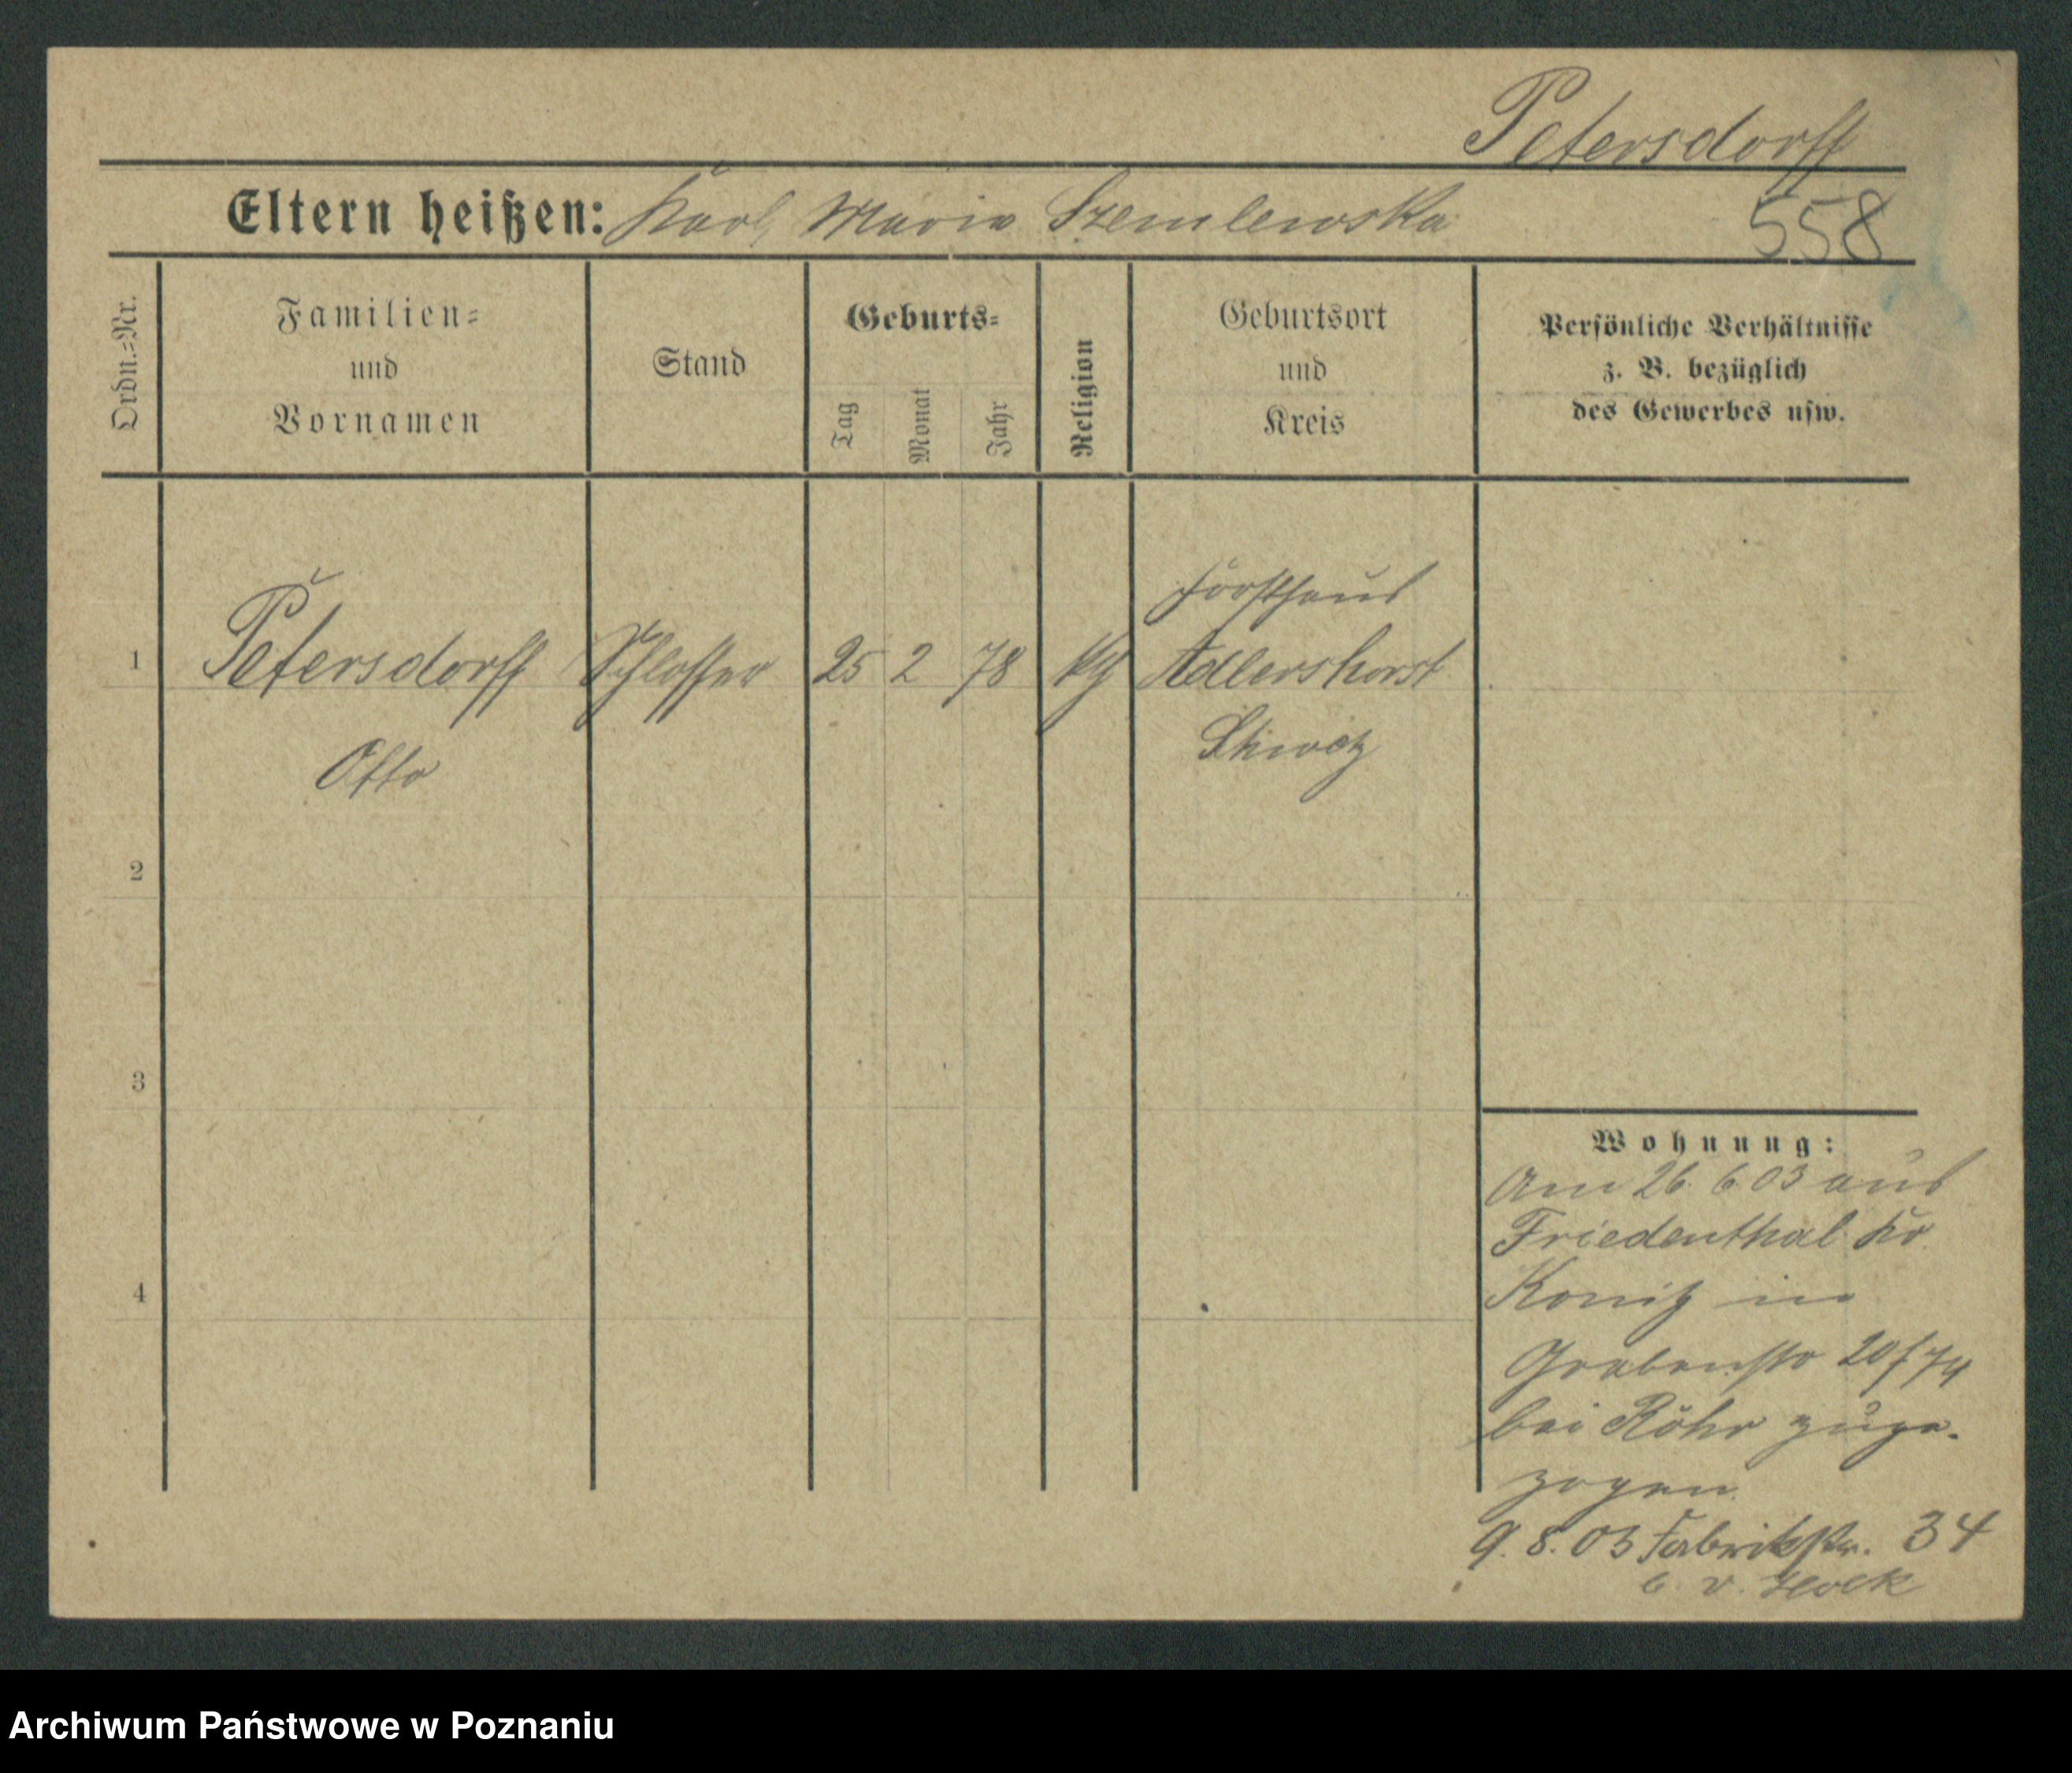 Petersdorff
Eltern heißen: Karl, Maria Szemlewska
558
Ordn.=Nr.
Familien=
und
Vornamen
Stand
Geburts=
Tag
Monat
Jahr
Religion
Geburtsort
und
Kreis
Persönliche Verhältnisse
z. B. bezüglich
des Gewerbes usw.
Forsthaus
1 Petersdorff Schlosser 25 2 78 kg Adlershorst
Otto Schwetz
2
3
4
Wohnung:
Am 26. 6 03 aus
Friedenthal Kr
Konitz in
Grabenstr 20/74
bei Röhr zuge-
zogen.
9. 8. 03 Fabrikstr. 34
b. v.
Archiwum Państwowe w Poznaniu